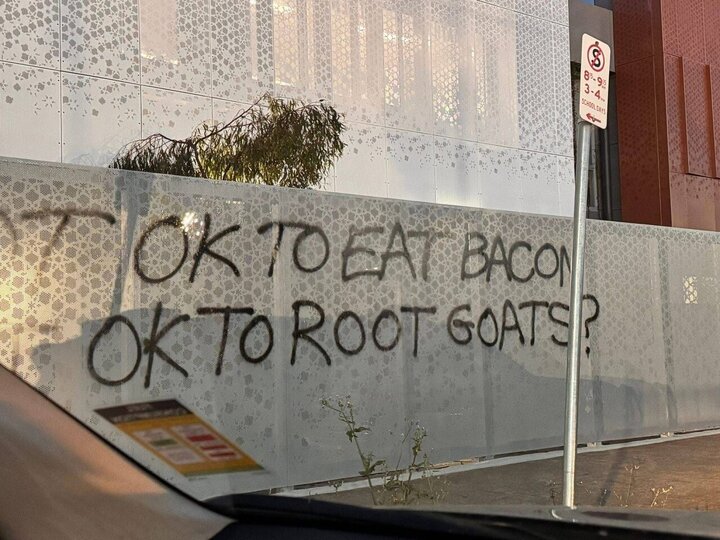 T OK TO EAT BACON
OK TO ROOT GOATS?
S
8-9
3-4
SCHOOL DAYS